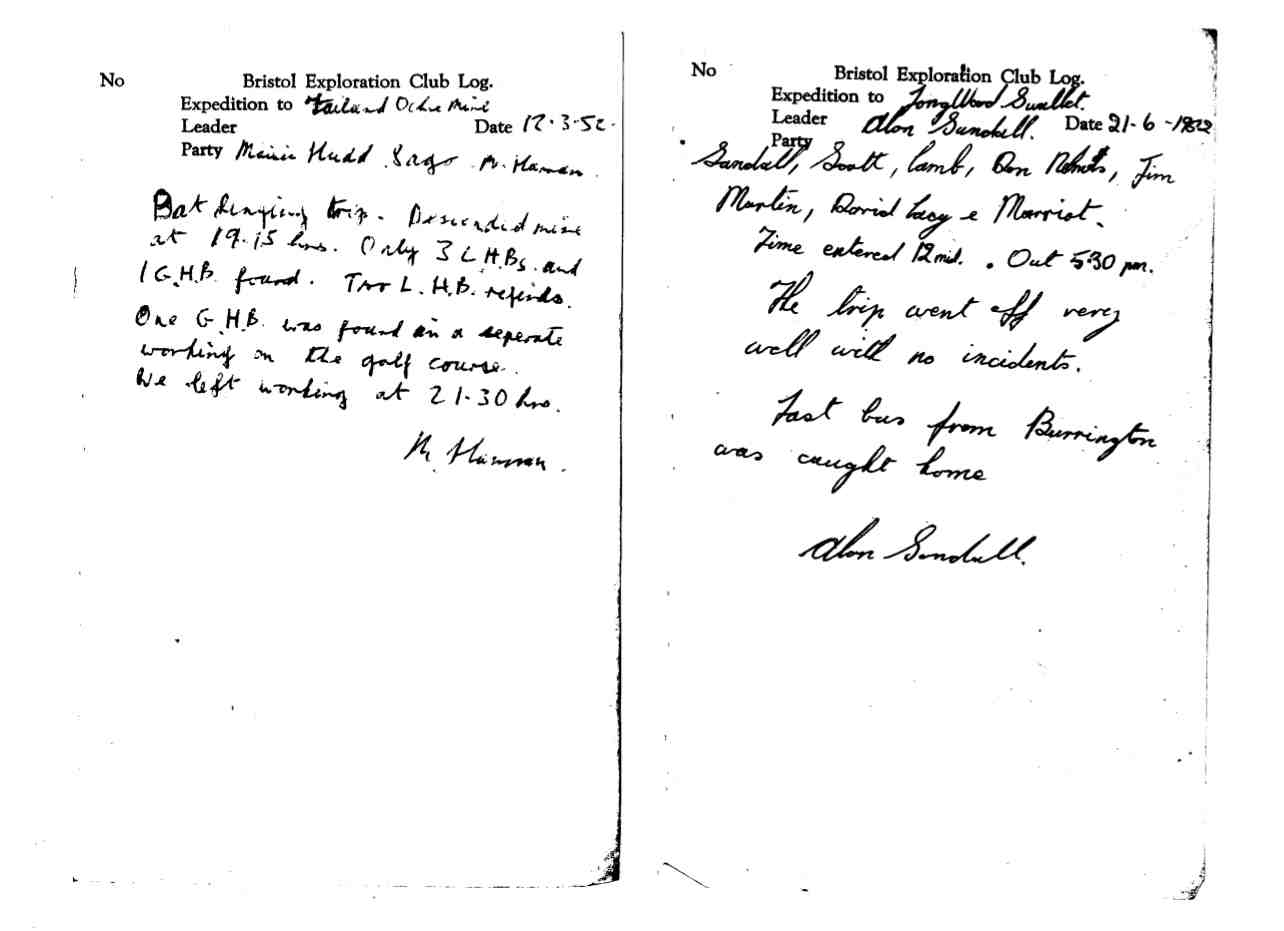 No
Bristol Exploration Club Log.
Expedition to Failand Ochre Mine
Leader
Date 12.3.52.
Party Hudd Sago
Bat Ringing trip. Descended mine
at 19.15 hrs. Only 3 L.H.Bs. and
1 G.H.B. found. Two L.H.B. refinds.
One G.H.B. was found in a seperate
working on the golf course.
We left working at 21.30 hrs.
No
Bristol Exploration Club Log.
Expedition to LongWood Swallet.
Leader Alan Sandall.
Date 21-6-1952
Party
Sandall, Scott, Lamb, Don Roberts, Jim
Martin, David Lacy & Marriot.
Time entered 12 mid. . Out 5.30 pm.
The trip went off very
well with no incidents.
Last bus from Burrington
was caught home
Alan Sandall.